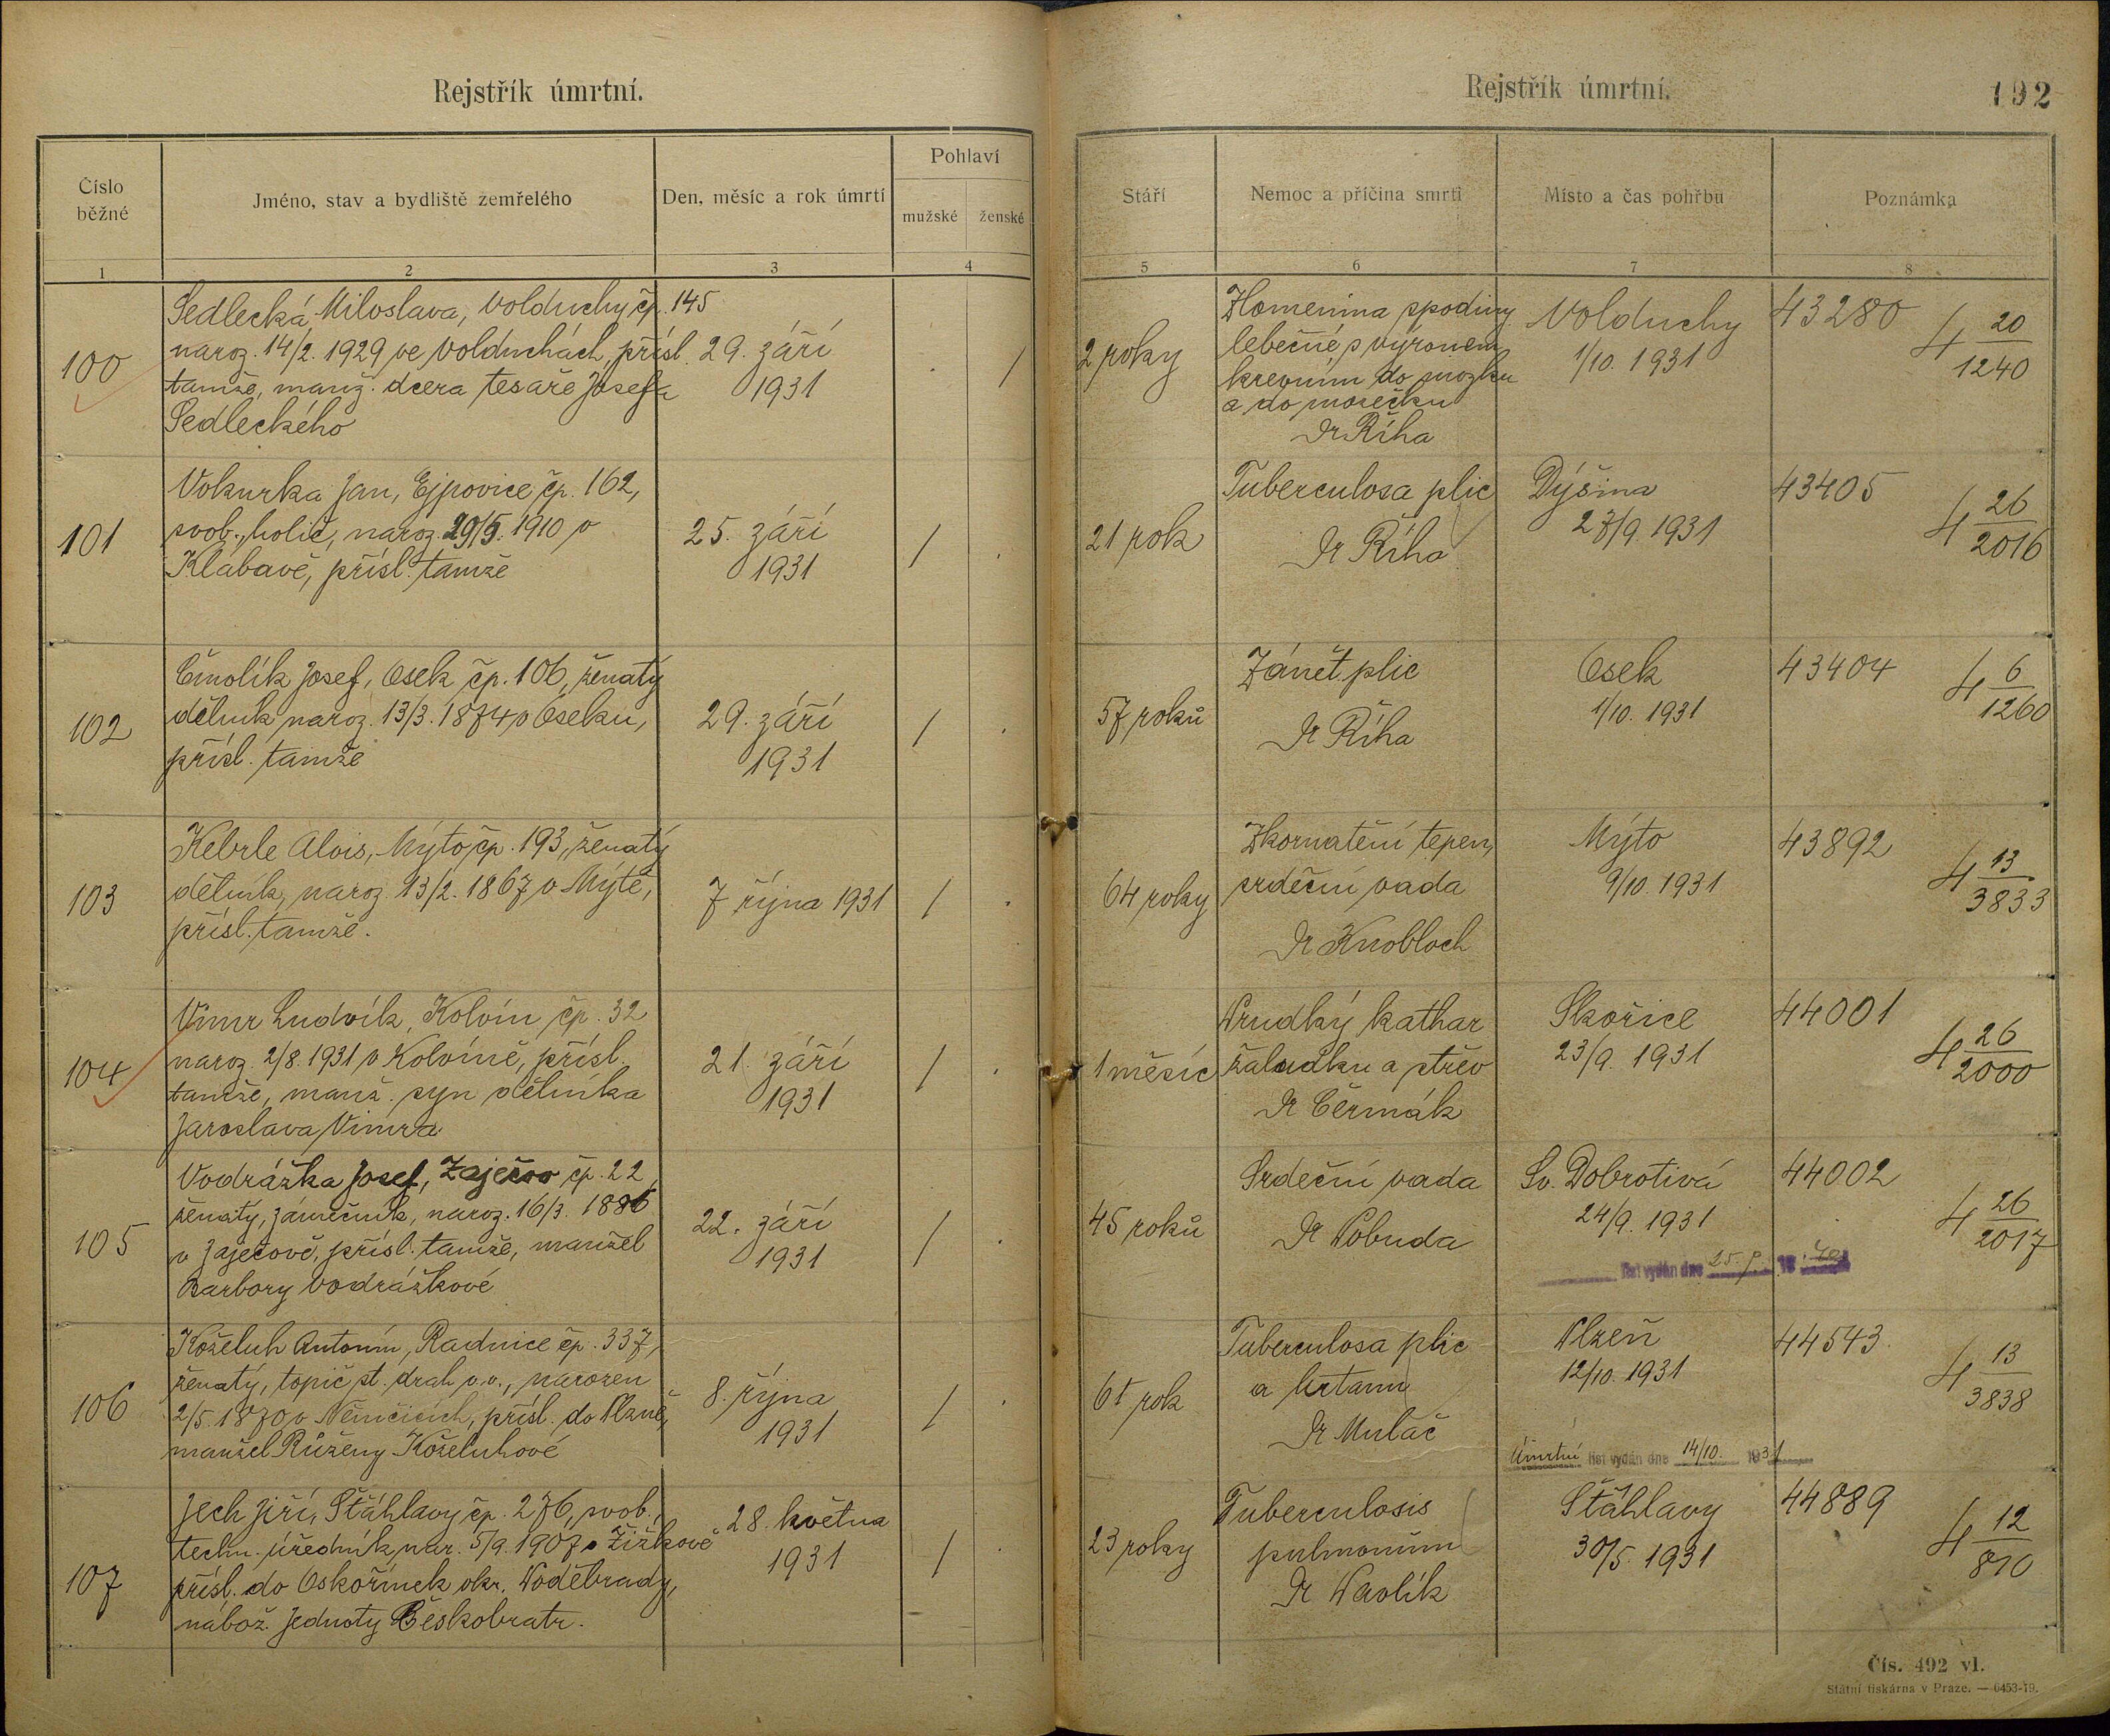 Rejstřík úmrtní.
Číslo běžné
Jméno, stav a bydliště zemřelého
Den, měsíc a rok úmrtí
Pohlaví
mužské
ženské
1
2
3
4
Rejstřík úmrtní.
192
Stáří
Nemoc a příčina smrti
Místo a čas pohřbu
Poznámka
5
6
7
8
100
Sedlecká Miloslava, Volduchy čp. 145
naroz. 14/2. 1929 ve Volduchách, přísl.
tamže, manž. dcera tesaře Josefa
Sedleckého
29. září
1931
/
2 roky
Zlomenina spodiny
lebečné, s výronem
krevním do mozku
a do mozečku
Dr Říha
Volduchy
1/10. 1931
43280
4 20/1240
101
Vokurka Jan, Ejpovice čp. 162,
svob., holič, naroz. 29/5. 1910 v
Klabavě, přísl. tamže
25. září
1931
/
21 rok
Tuberculosa plic
Dr Říha
Dýšina
27/9. 1931
43405
4 26/2016
102
Čmolík Josef, Osek čp. 106, ženatý
dělník naroz. 13/3. 1874 v Oseku,
přísl. tamže
29. září
1931
/
57 roků
Zánět plic
Dr Říha
Osek
1/10. 1931
43404
4 6/1260
103
Keberle Alois, Mýto čp. 193, ženatý
dělník, naroz. 13/2. 1867 v Mýtě,
přísl. tamže.
7 října 1931
/
64 roky
Zkornatění tepen,
srdeční vada
Dr Knobloch
Mýto
9/10. 1931
43892
4 13/3833
104
Vimr Ludvík, Kolvín čp. 32
naroz. 2/8. 1931 v Kolvíně, přísl.
tamže, manž. syn dělníka
Jaroslava Vimra
21. září
1931
/
1 měsíc
Prudký kathar
žaludku a střev
Dr Čermák
Skořice
23/9. 1931
44001
4 26/2000
105
Vodrážka Josef, Zaječov čp. 22
ženatý, zámečník, naroz. 16/3. 1886
v Zaječově, přísl. tamže, manžel
Barbory Vodrážkové
22. září
1931
/
45 roků
Srdeční vada
Dr Pobuda
Sv. Dobrotivá
24/9. 1931
list vydán dne 25. 9. 19
44002
4 26/2017
106
Koželuh Antonín, Radnice čp. 337,
ženatý, topič st. drah v.v., narozen
2/5. 1870 v Němčicích, přísl. do Plzně,
manžel Růženy Koželuhové
8. října
1931
/
61 rok
Tuberculosa plic
a hrtanu
Dr Mulač
Plzeň
12/10. 1931
Úmrtní list vydán dne 14/10. 1931
44543
4 13/3838
107
Jech Jiří, Štáhlavy čp. 276, svob.,
techn. úředník, nar. 5/9. 1907 v Žižkově
přísl. do Oskořínek okr. Poděbrady,
nábož. Jednoty Českobratr.
28. května
1931
/
23 roky
Tuberculosis
pulmonum
Dr Pavlík
Štáhlavy
30/5. 1931
44889
4 12/810
Čís. 492 vl.
Státní tiskárna v Praze. — 6453-19.